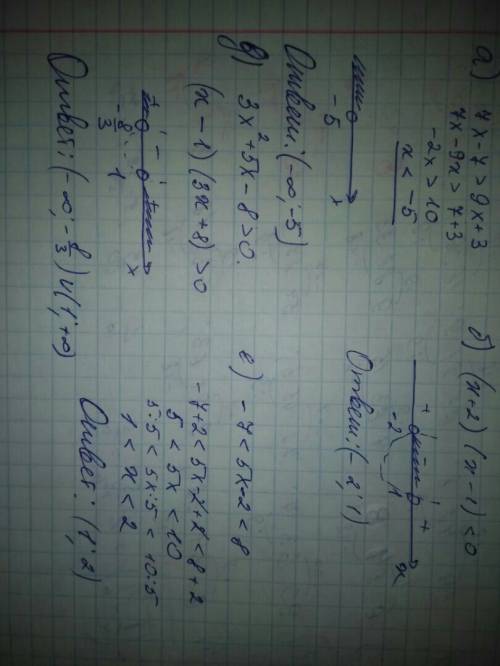 а) 7x-7>9x+3
7x-9x>7+3
-2x>10
x<-5
-5 x
Ответ: (-∞;-5)
б) (x+2)(x-1)<0
+ - +
-2 1 x
Ответ: (-2;1)
в) 3x²+5x-8>0.
(x-1)(3x+8)>0
+ - +
-8/3 1 x
Ответ: (-∞;-8/3)∪(1;+∞)
е) -7<5x-2<8
-7+2<5x-2+2<8+2
5<5x<10
5:5<5x:5<10:5
1<x<2
Ответ: (1;2)